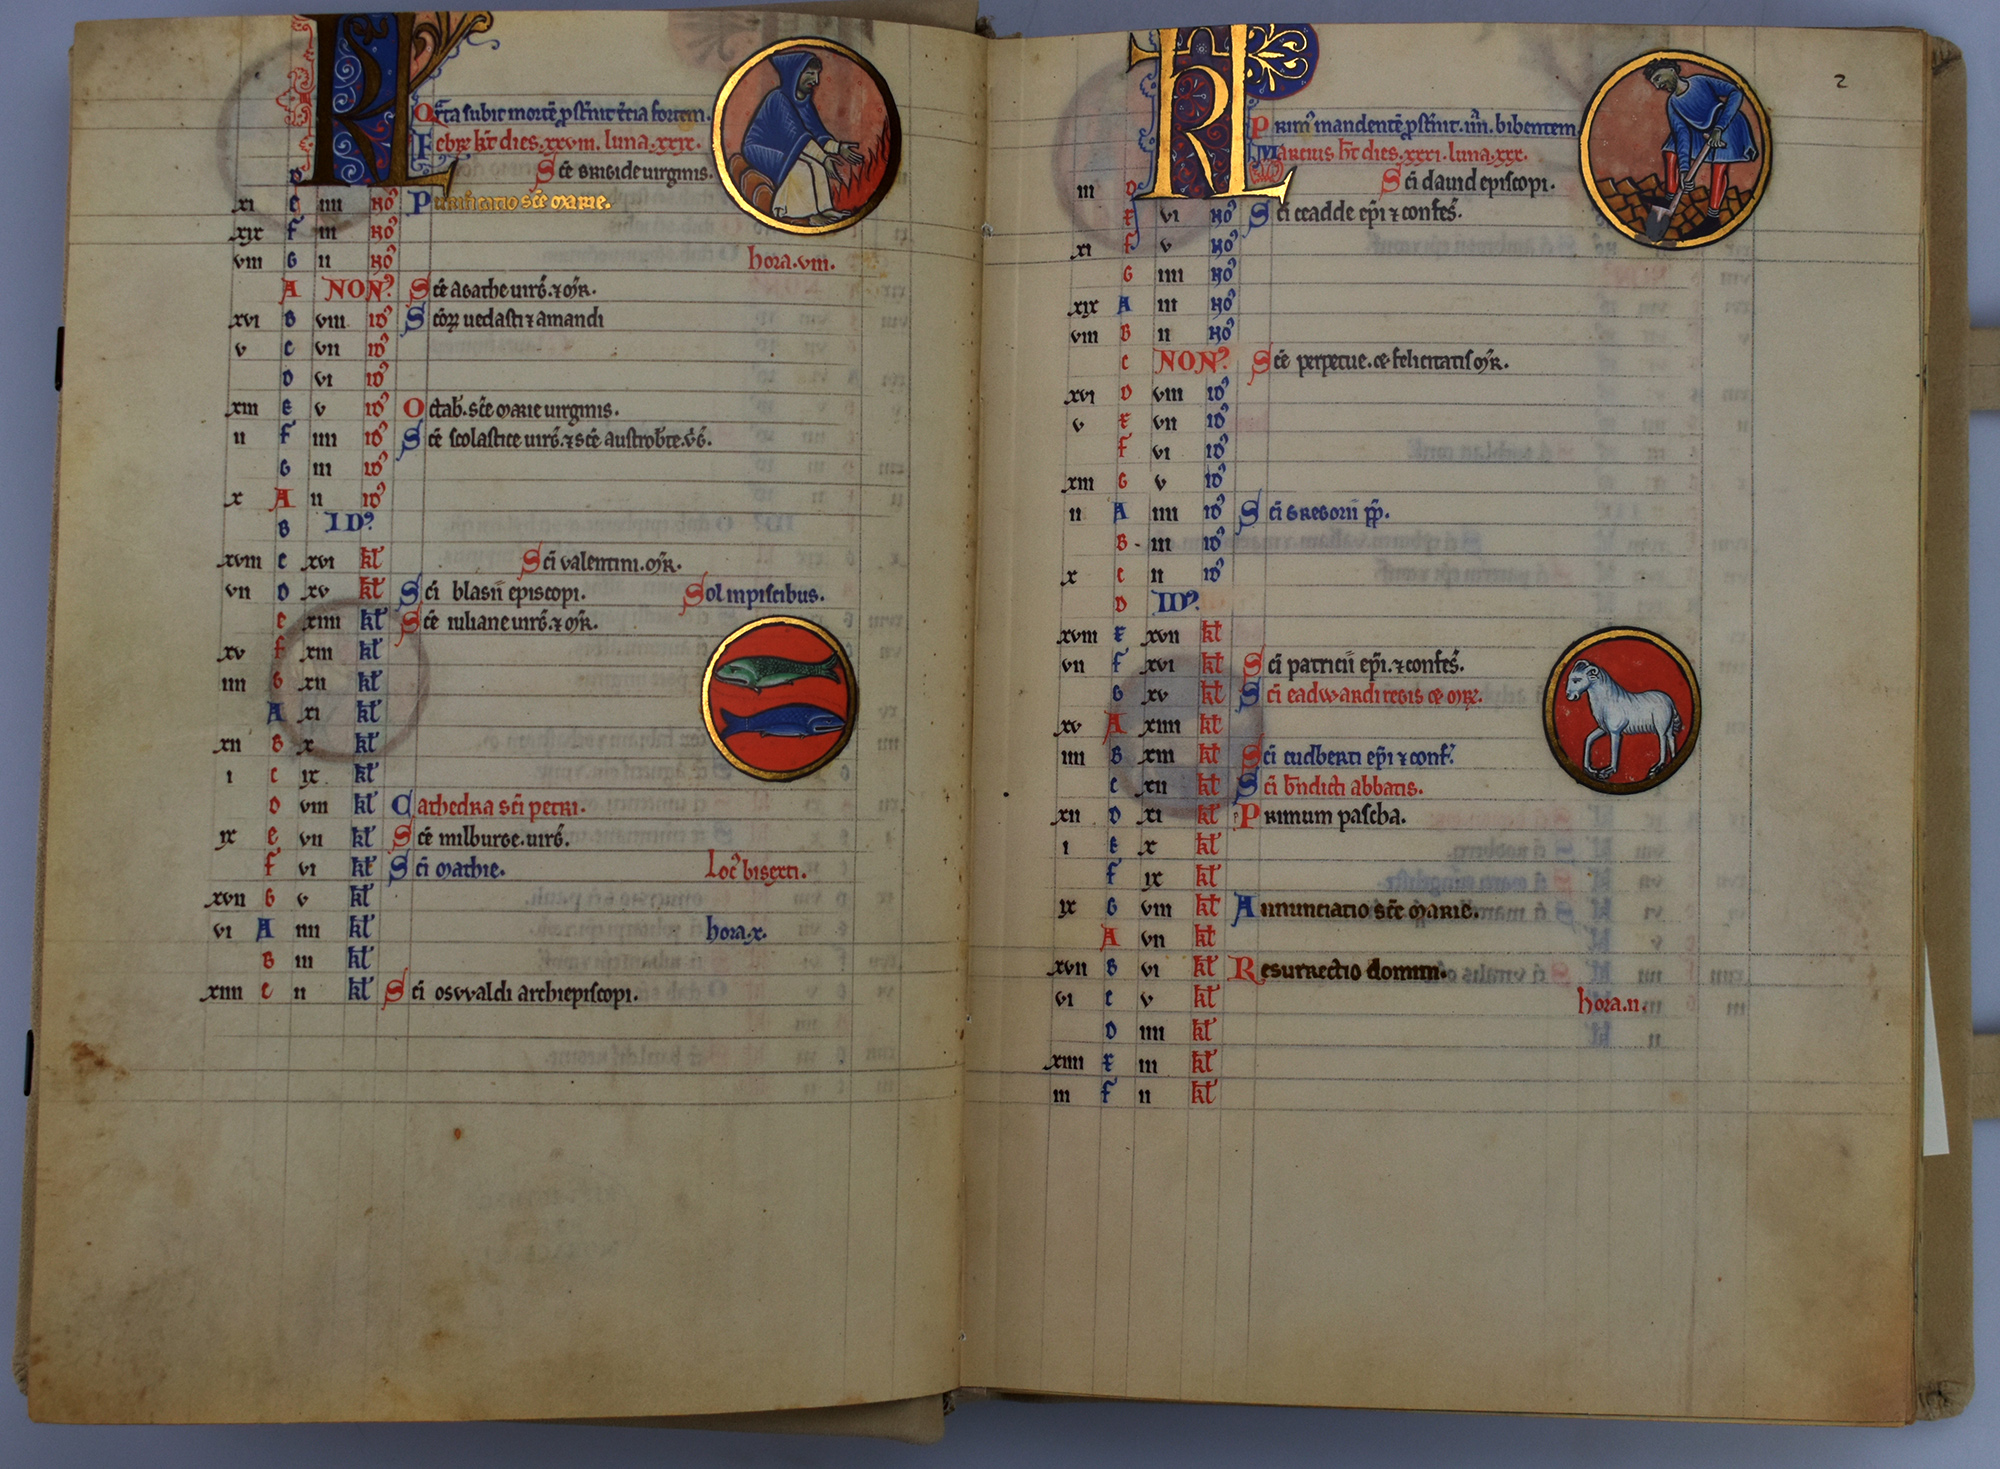 KL
Q̄rta subit mortē ꝓsťnit t̄cia fortem.
Febrꝰ ħt dies. xxviii. luna. xxix.
D Sc̄e brigide uirginis.
xi E iiii NO᾽ Purificatio sc̄e marie.
xix F iii NO᾽
viii G ii NO᾽ hora. viii.
A NON᾽ Sc̄e agathe uirḡ. ⁊ mr̄.
xvi B viii ID᾽ Scōꝝ uedasti ⁊ amandi
v C vii ID᾽
D vi ID᾽
xiii E v ID᾽ Octab̄. sc̄e marie uirginis.
ii F iiii ID᾽ Sc̄e scolastice uirḡ. ⁊ sc̄e austrob̄te. v̄ḡ.
G iii ID᾽
x A ii ID᾽
B ID᾽
xviii C xvi kł Sc̄i valentini. mr̄.
vii D xv kł Sc̄i blasii episcopi. Sol in piscibus.
E xiiii kł Sc̄e iuliane uirḡ. ⁊ mr̄.
xv F xiii kł
iiii G xii kł
A xi kł
xii B x kł
i C ix kł
D viii kł Cathedra sc̄i petri.
ix E vii kł Sc̄e milburge. uirḡ.
F vi kł Sc̄i mathie. Loc᾽ bisexti.
xvii G v kł
vi A iiii kł hora. x.
B iii kł
xiiii C ii kł Sc̄i osvvaldi archiepiscopi.
2
KL
Prim᾽ mandentē ꝓsťnit. iiii. bibentem
Marcius ħt dies. xxxi. luna. xxx.
iii D Sc̄i dauid episcopi.
E vi NO᾽ Sc̄i ceadde ep̄i ⁊ confes̄.
xi F v NO᾽
G iiii NO᾽
xix A iii NO᾽
viii B ii NO᾽
C NON᾽ Sc̄e perpetue. ⁊ felicitatis mr̄.
xvi D viii ID᾽
v E vii ID᾽
F vi ID᾽
xiii G v ID᾽
ii A iiii ID᾽ Sc̄i gregorii pp̄.
B iii ID᾽
x C ii ID᾽
D ID᾽
xviii E xvii kł
vii F xvi kł Sc̄i patricii ep̄i. ⁊ confes̄.
G xv kł Sc̄i eadwardi regis ⁊ mr̄.
xv A xiiii kł
iiii B xiii kł Sc̄i cudberti ep̄i ⁊ conf̄.
C xii kł Sc̄i b̄ndicti abbatis.
xii D xi kł Primum pascha.
i E x kł
F ix kł
ix G viii kł Annunciatio sc̄e marie.
A vii kł
xvii B vi kł Resurrectio domini.
vi C v kł hora. ii.
D iiii kł
xiiii E iii kł
iii F ii kł